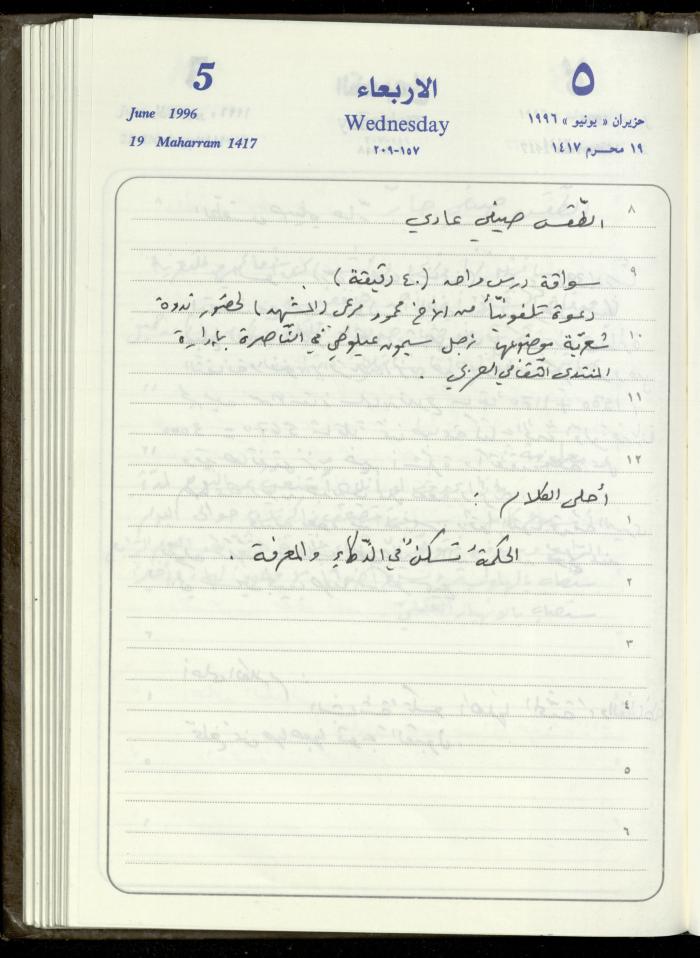 5
الاربعاء
٥
June 1996
Wednesday
حزيران « يونيو » ١٩٩٦
19 Maharram 1417
٢٠٩-١٥٧
١٩ محرم ١٤١٧
٨
الطّقس صيفي عادي
٩
سواقة درس واحد (٤٠ دقيقة) .
دعوة تلفونيّاً من الأخ محمود مرعي (المشهد) لحضور ندوة
١٠
شعريّة موضوعها زجل سيمون عيلوطي في النّاصرة بإدارة
المنتدى الثقافي العربي .
١١
١٢
أحلى الكلام :
١
الحكمةُ تسكنُ في الذّكاءِ والمعرفة .
٢
٣
٤
٥
٦